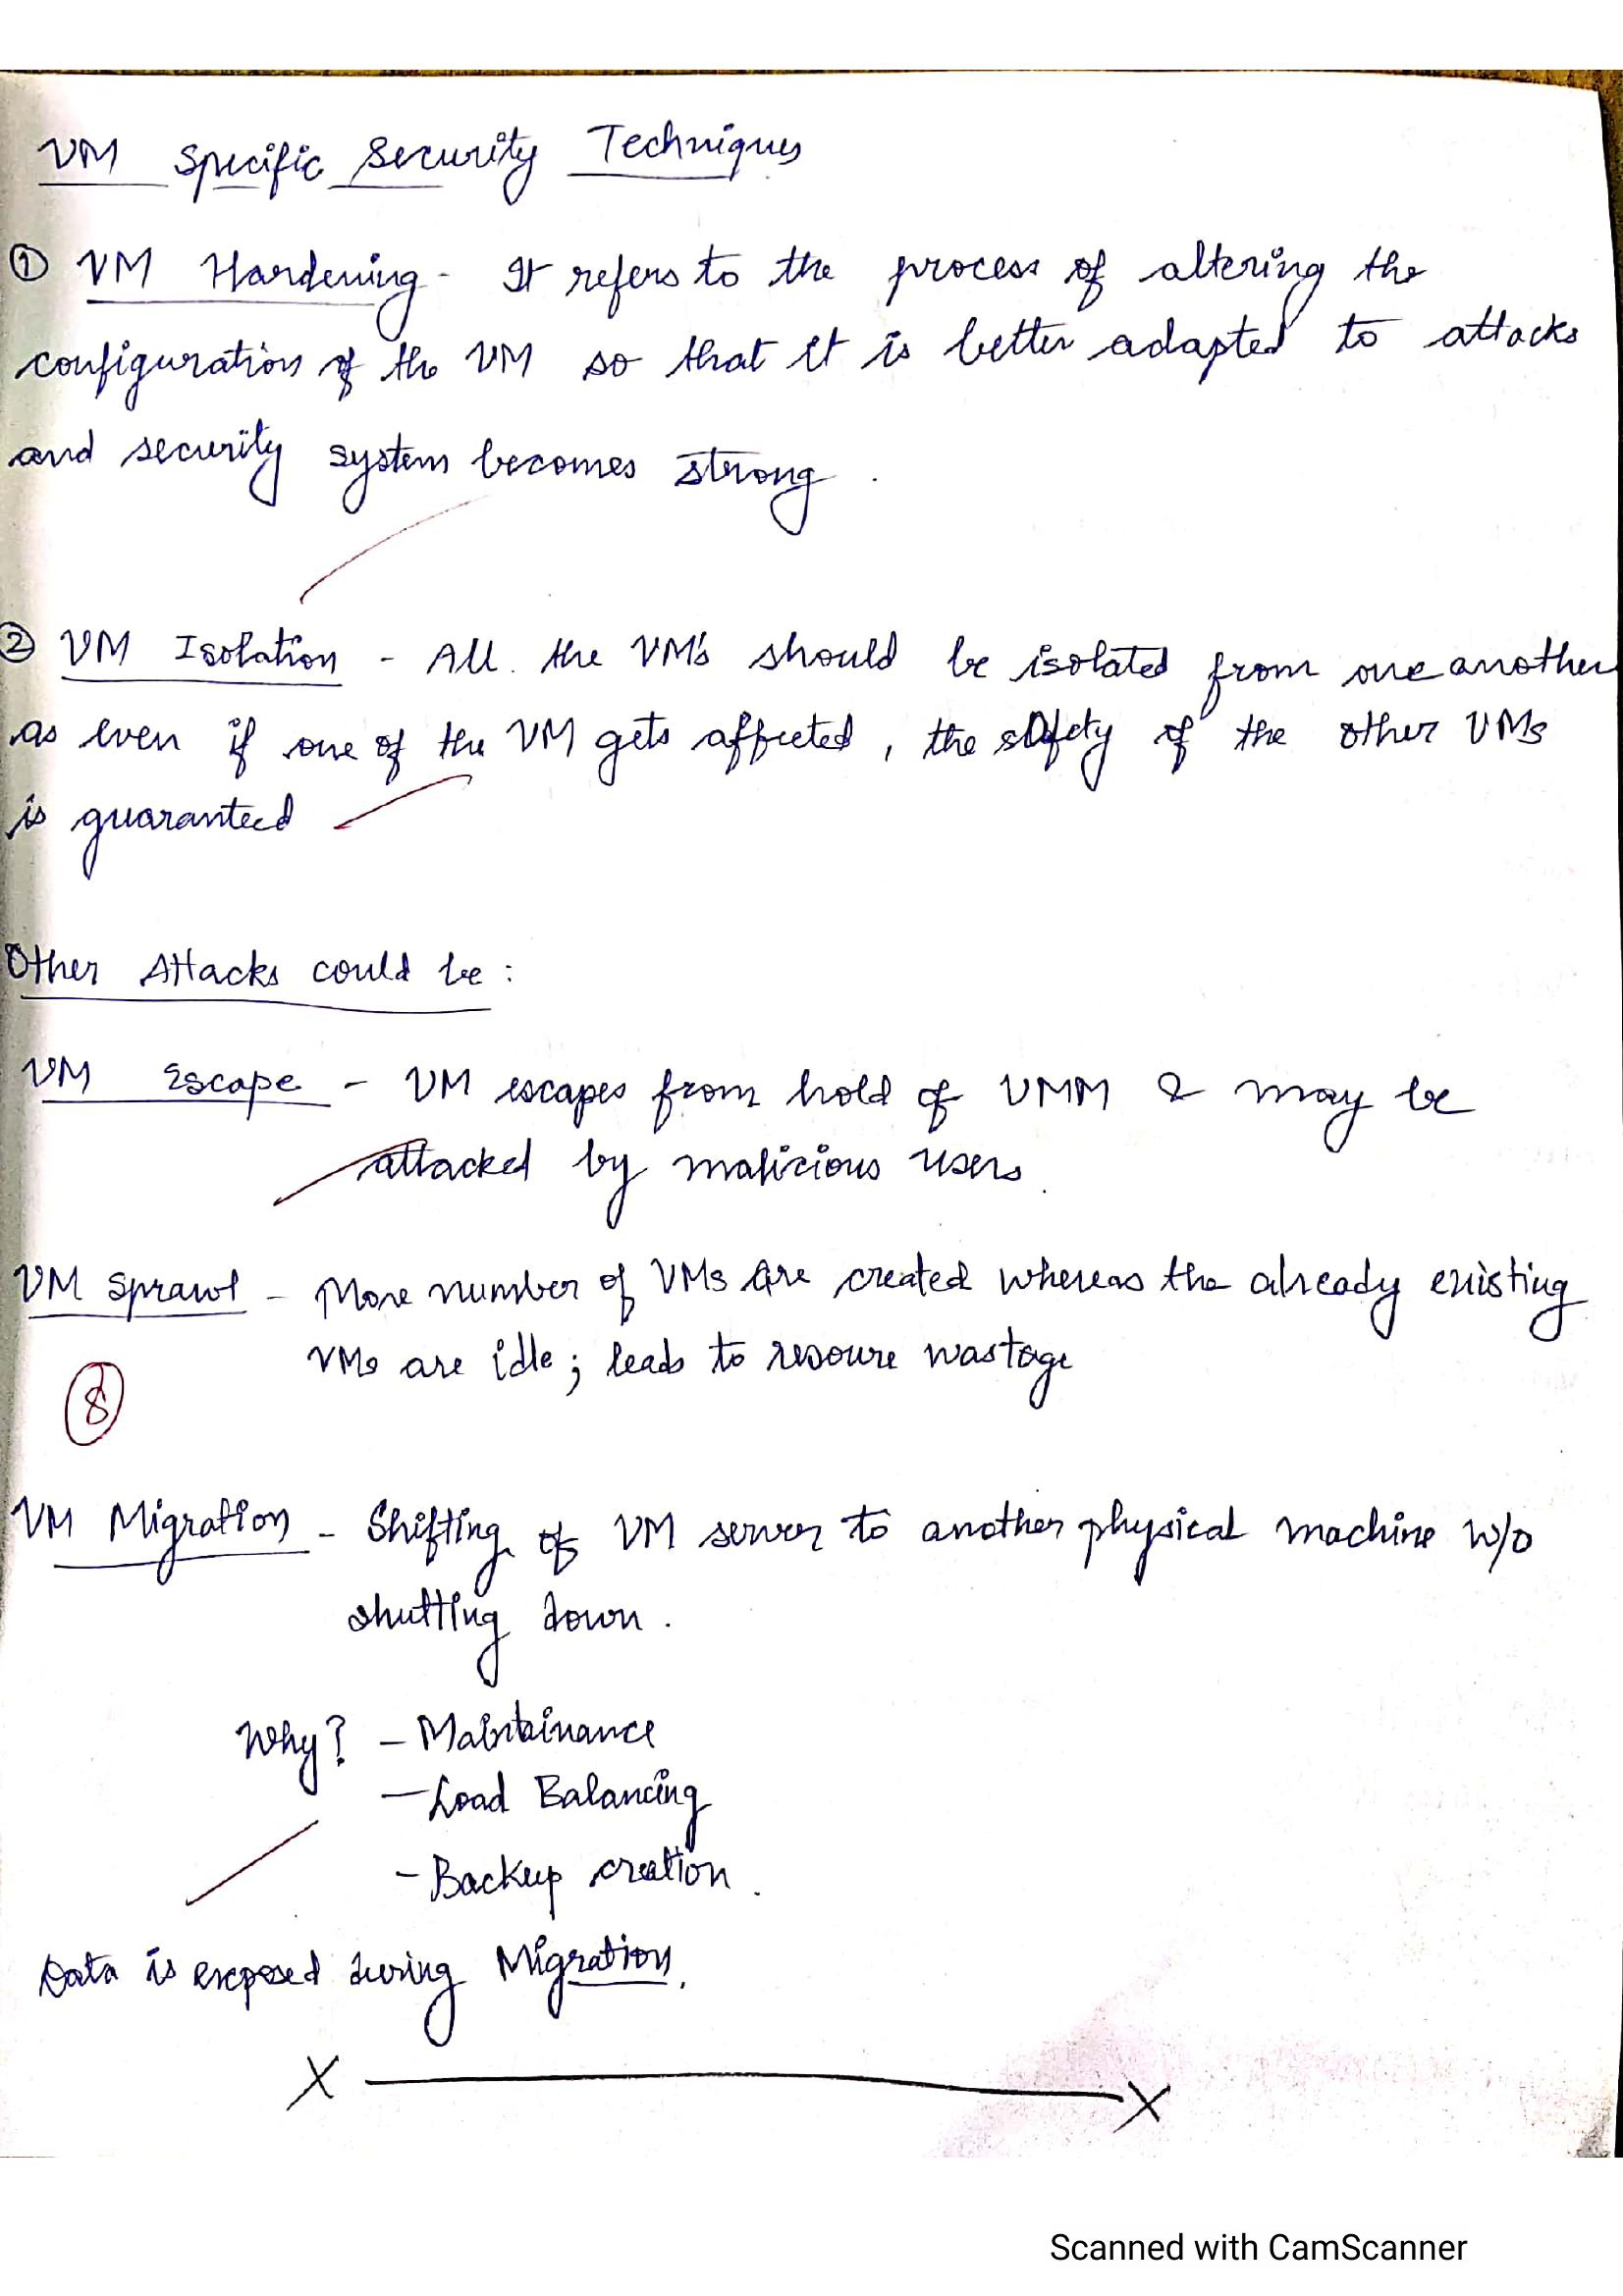 VM Specific Security Techniques
① VM Hardening - It refers to the process of altering the
configuration of the VM so that it is better adapted to attacks
and security system becomes strong.
② VM Isolation - All the VM's should be isolated from one another
as even if one of the VM gets affected, the safety of the other VMs
is guaranteed
Other Attacks could be :
VM Escape - VM escapes from hold of VMM & may be
attacked by malicious users.
VM sprawl - More number of VMs are created whereas the already existing
VMs are idle ; leads to resoure wastage
8
VM Migration - Shifting of VM server to another physical machine w/o
shutting down.
Why? - Maintainance
- Load Balancing
- Backup creation.
Data is exposed during Migration.
X X
Scanned with CamScanner